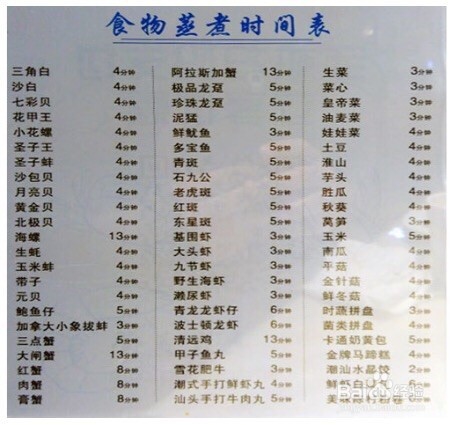 食物蒸煮时间表
三角白 4分钟
沙白 4分钟
七彩贝 4分钟
花甲王 4分钟
小花螺 4分钟
圣子王 4分钟
圣子蚌 4分钟
沙包贝 4分钟
月亮贝 4分钟
黄金贝 4分钟
北极贝 4分钟
海螺 13分钟
生蚝 4分钟
玉米蚌 4分钟
带子 4分钟
元贝 4分钟
鲍鱼仔 5分钟
加拿大小象拔蚌 3分钟
三点蟹 5分钟
大闸蟹 13分钟
红蟹 8分钟
肉蟹 8分钟
膏蟹 8分钟
阿拉斯加蟹 13分钟
极品龙趸 5分钟
珍珠龙趸 5分钟
泥猛 5分钟
鲜鱿鱼 3分钟
多宝鱼 5分钟
青斑 5分钟
石九公 5分钟
老虎斑 5分钟
红斑 5分钟
东星斑 5分钟
基围虾 3分钟
大头虾 3分钟
九节虾 3分钟
野生海虾 3分钟
濑尿虾 3分钟
青龙龙虾仔 6分钟
波士顿龙虾 6分钟
清远鸡 13分钟
甲子鱼丸 5分钟
雪花肥牛 3分钟
潮式手打鲜虾丸 4分钟
汕头手打牛肉丸 5分钟
生菜 3分钟
菜心 3分钟
皇帝菜 3分钟
油麦菜 3分钟
娃娃菜 3分钟
土豆 4分钟
淮山 4分钟
芋头 4分钟
胜瓜 4分钟
秋葵 4分钟
莴笋 3分钟
玉米 5分钟
南瓜 4分钟
平菇 4分钟
金针菇 4分钟
鲜冬菇 4分钟
时蔬拼盘 3分钟
菌类拼盘 4分钟
卡通奶黄包 5分钟
金牌马蹄糕 4分钟
潮汕水晶饺
鲜虾
美味